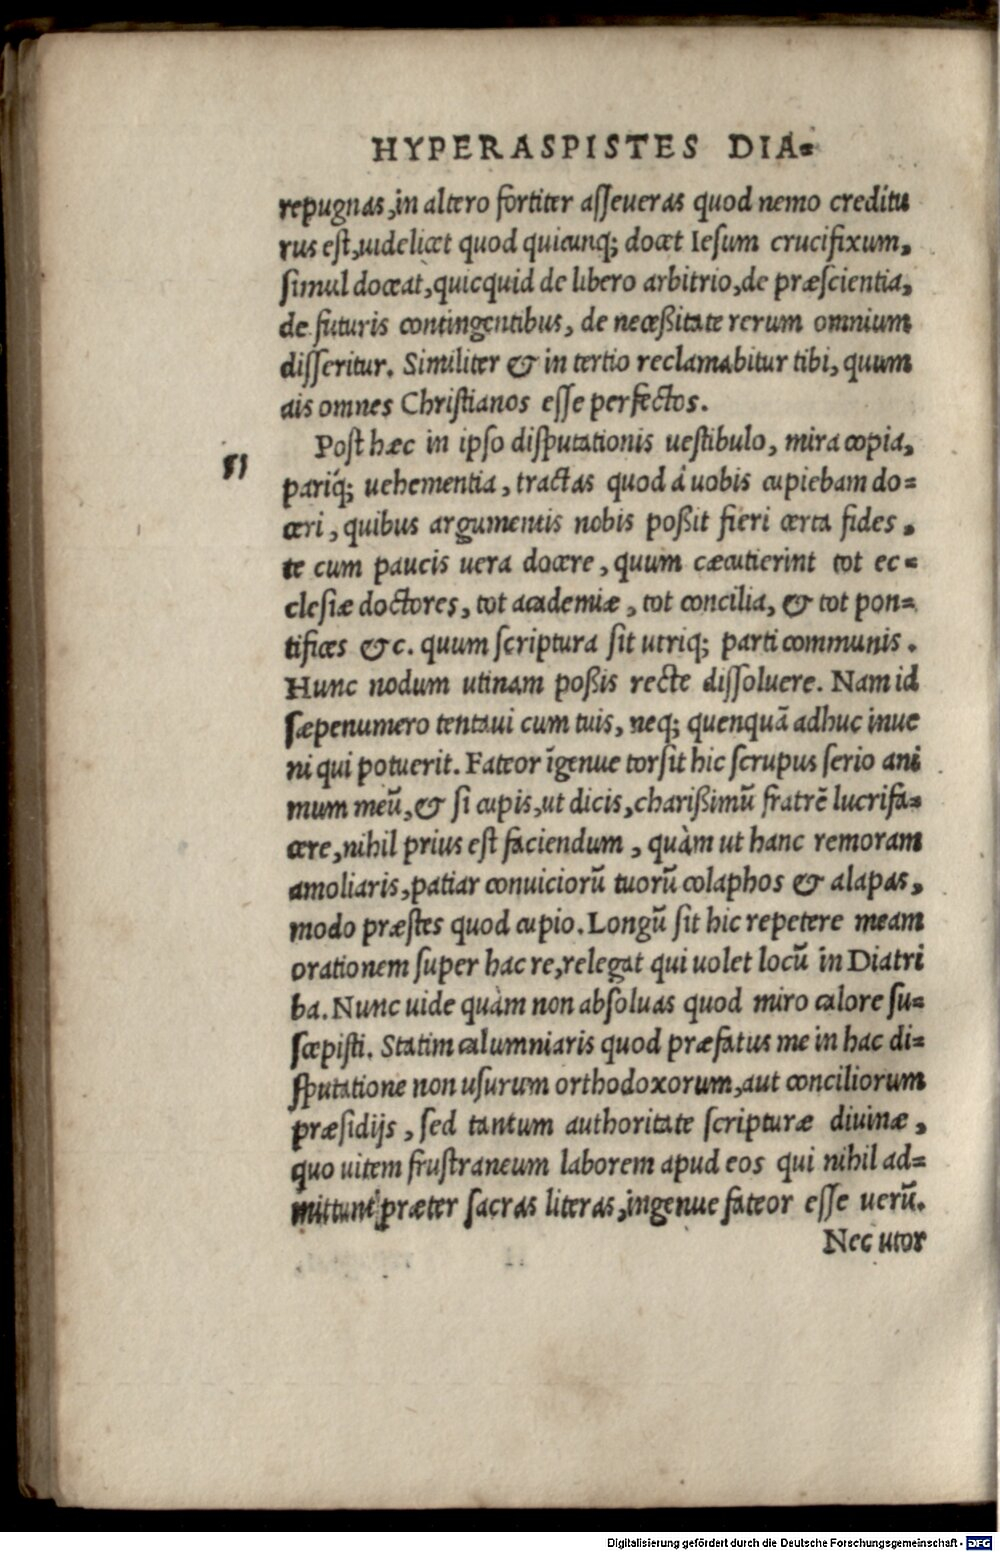 HYPERASPISTES DIA-
repugnas, in altero fortiter asseueras quod nemo creditu
rus est, uidelicet quod quicunq; docet Iesum crucifixum,
simul doceat, quicquid de libero arbitrio, de præscientia,
de futuris contingentibus, de neceßitate rerum omnium
disseritur. Similiter & in tertio reclamabitur tibi, quum
ais omnes Christianos esse perfectos.
Post hæc in ipso disputationis uestibulo, mira copia,
51
pariq́; uehementia, tractas quod à uobis cupiebam do-
ceri, quibus argumentis nobis poßit fieri certa fides,
te cum paucis uera docere, quum cæcutierint tot ec-
clesiæ doctores, tot academiæ, tot concilia, & tot pon-
tifices &c. quum scriptura sit utriq; parti communis.
Hunc nodum utinam poßis recte dissoluere. Nam id
sæpenumero tentaui cum tuis, neq; quenquā adhuc inue
ni qui potuerit. Fateor īgenue torsit hic scrupus serio ani
mum meū, & si cupis, ut dicis, charißimū fratrē lucrifa-
cere, nihil prius est faciendum, quàm ut hanc remoram
amoliaris, patiar conuiciorū tuorū colaphos & alapas,
modo præstes quod cupio. Longū sit hic repetere meam
orationem super hac re, relegat qui uolet locū in Diatri
ba. Nunc uide quàm non absoluas quod miro calore su-
scepisti. Statim calumniaris quod præfatus me in hac di-
sputatione non usurum orthodoxorum, aut conciliorum
præsidijs, sed tantum authoritate scripturæ diuinæ,
quo uitem frustraneum laborem apud eos qui nihil ad-
mittunt præter sacras literas, ingenue fateor esse uerū.
Nec utor
Digitalisierung gefördert durch die Deutsche Forschungsgemeinschaft - DFG